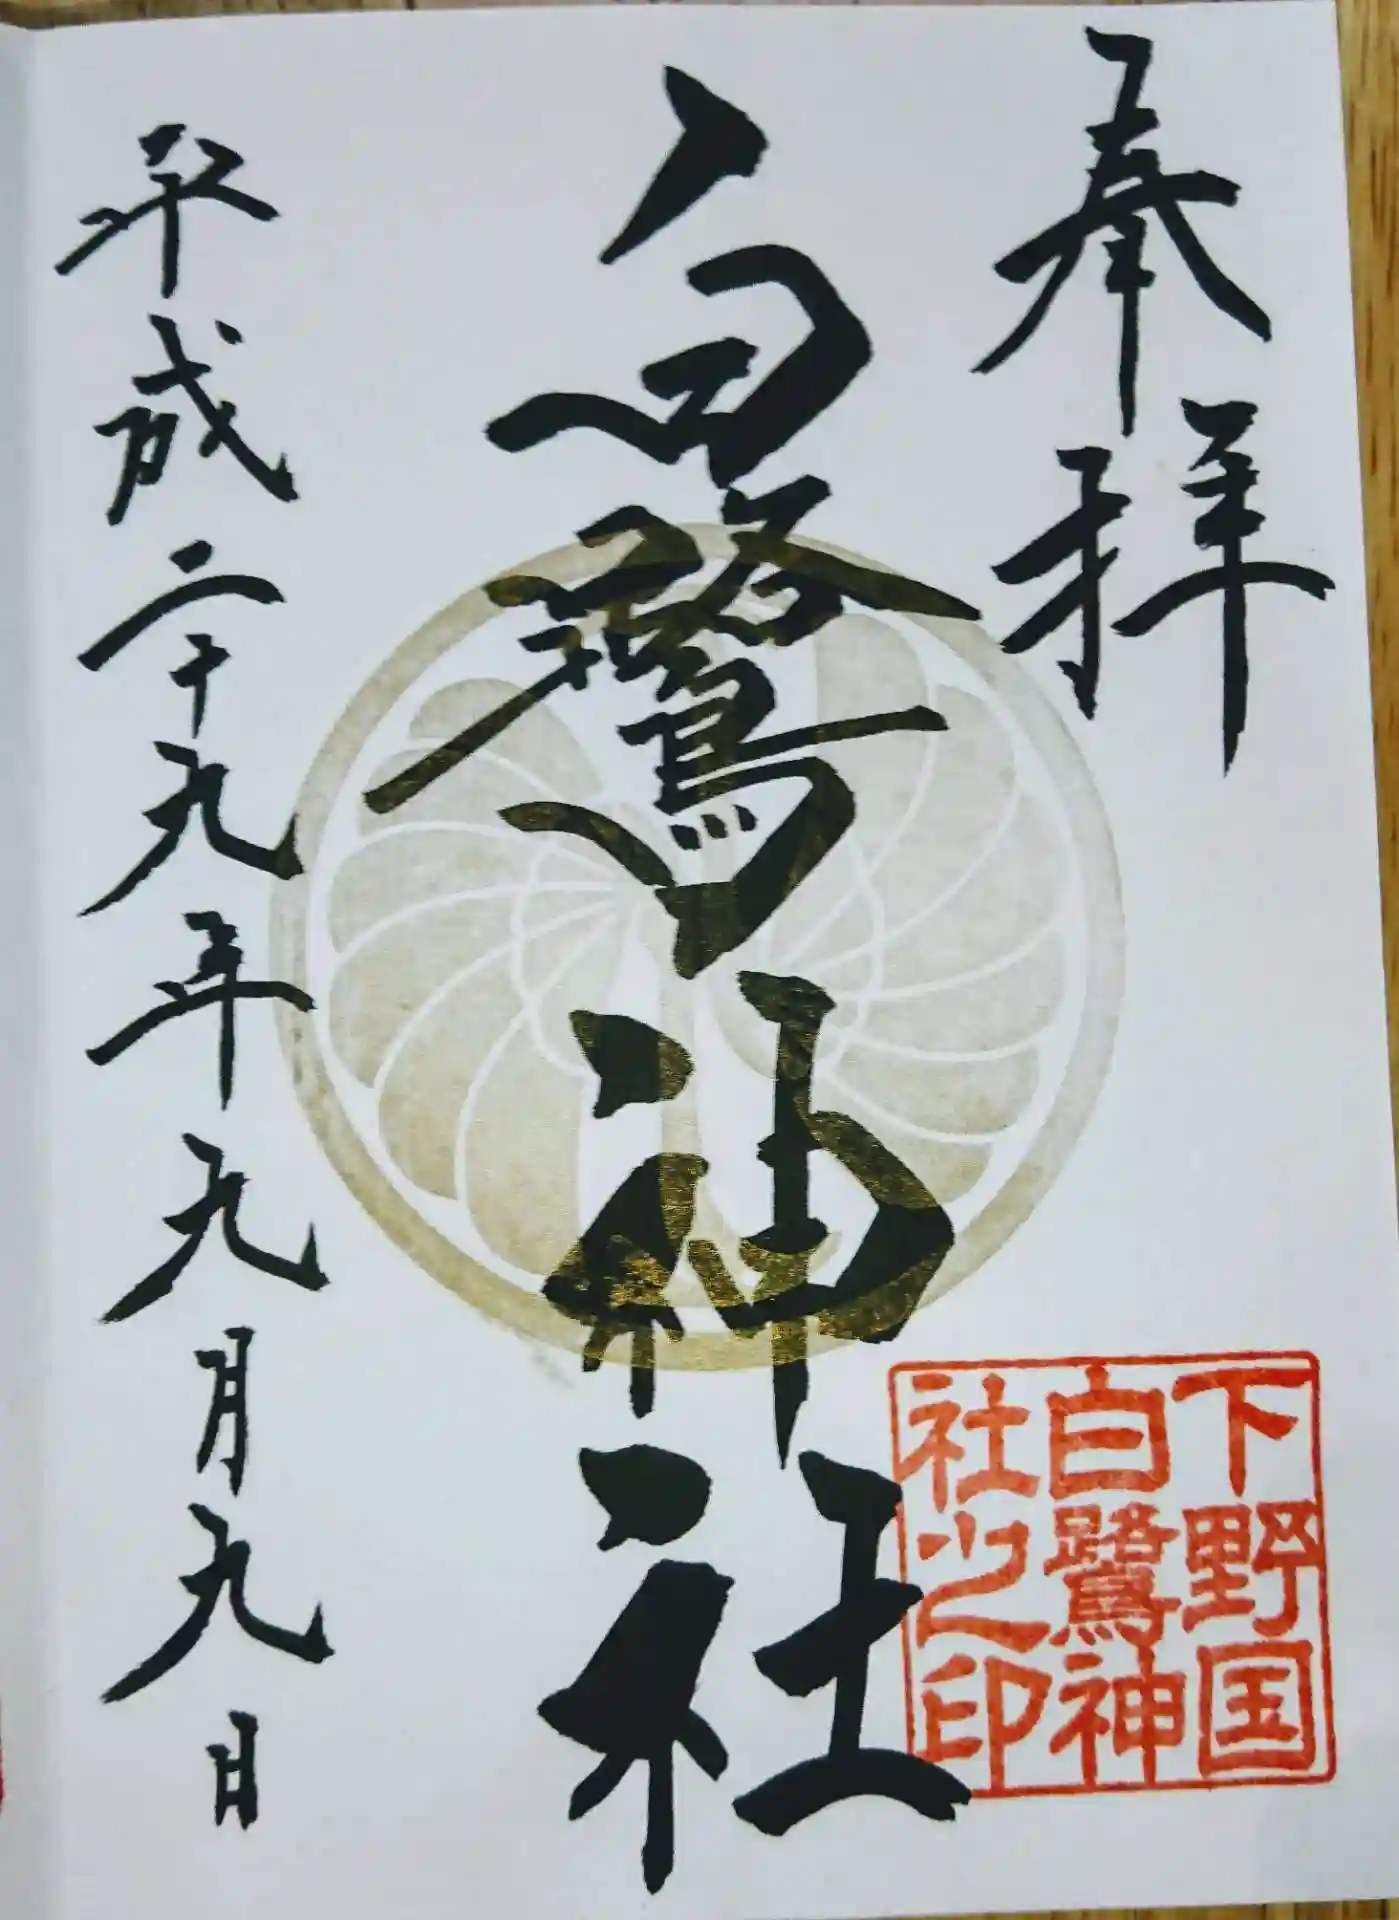 奉拝
白鷺神社
下野国
白鷺神
社之印
平成二十九年九月九日